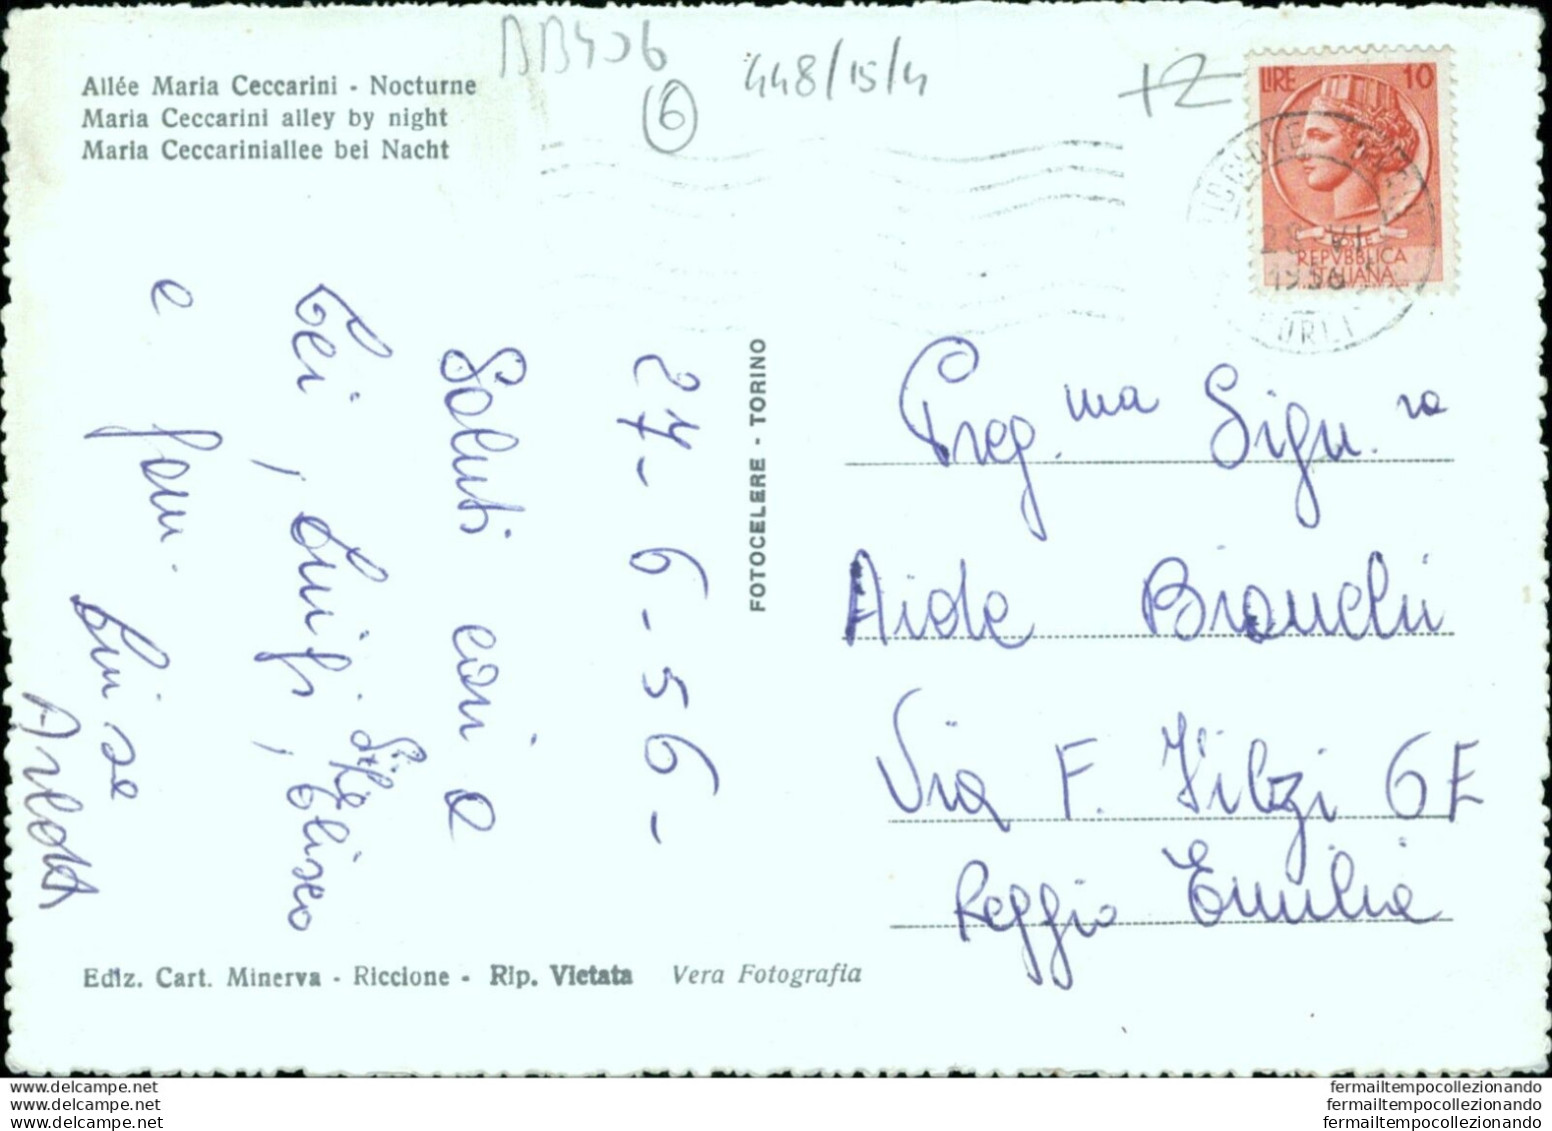 Allée Maria Ceccarini - Nocturne
Maria Ceccarini alley by night
Maria Ceccariniallee bei Nacht
BB436
6
448/15/4
LIRE 10
POSTE
REPVBBLICA
ITALIANA
RICCIONE
VI
1956
FORLI
27-6-56-
Saluti cari a
Lei, Luigi, Eliseo
e fam. Luisa
FOTOCELERE - TORINO
Preg.ma Sign.ra
Aida Bianchi
Via F. Filzi 6E
Reggio Emilia
Ediz. Cart. Minerva - Riccione - Rip. Vietata Vera Fotografia
www.delcampe.net
www.delcampe.net
www.delcampe.net
fermailtempocollezionando
fermailtempocollezionando
fermailtempocollezionando